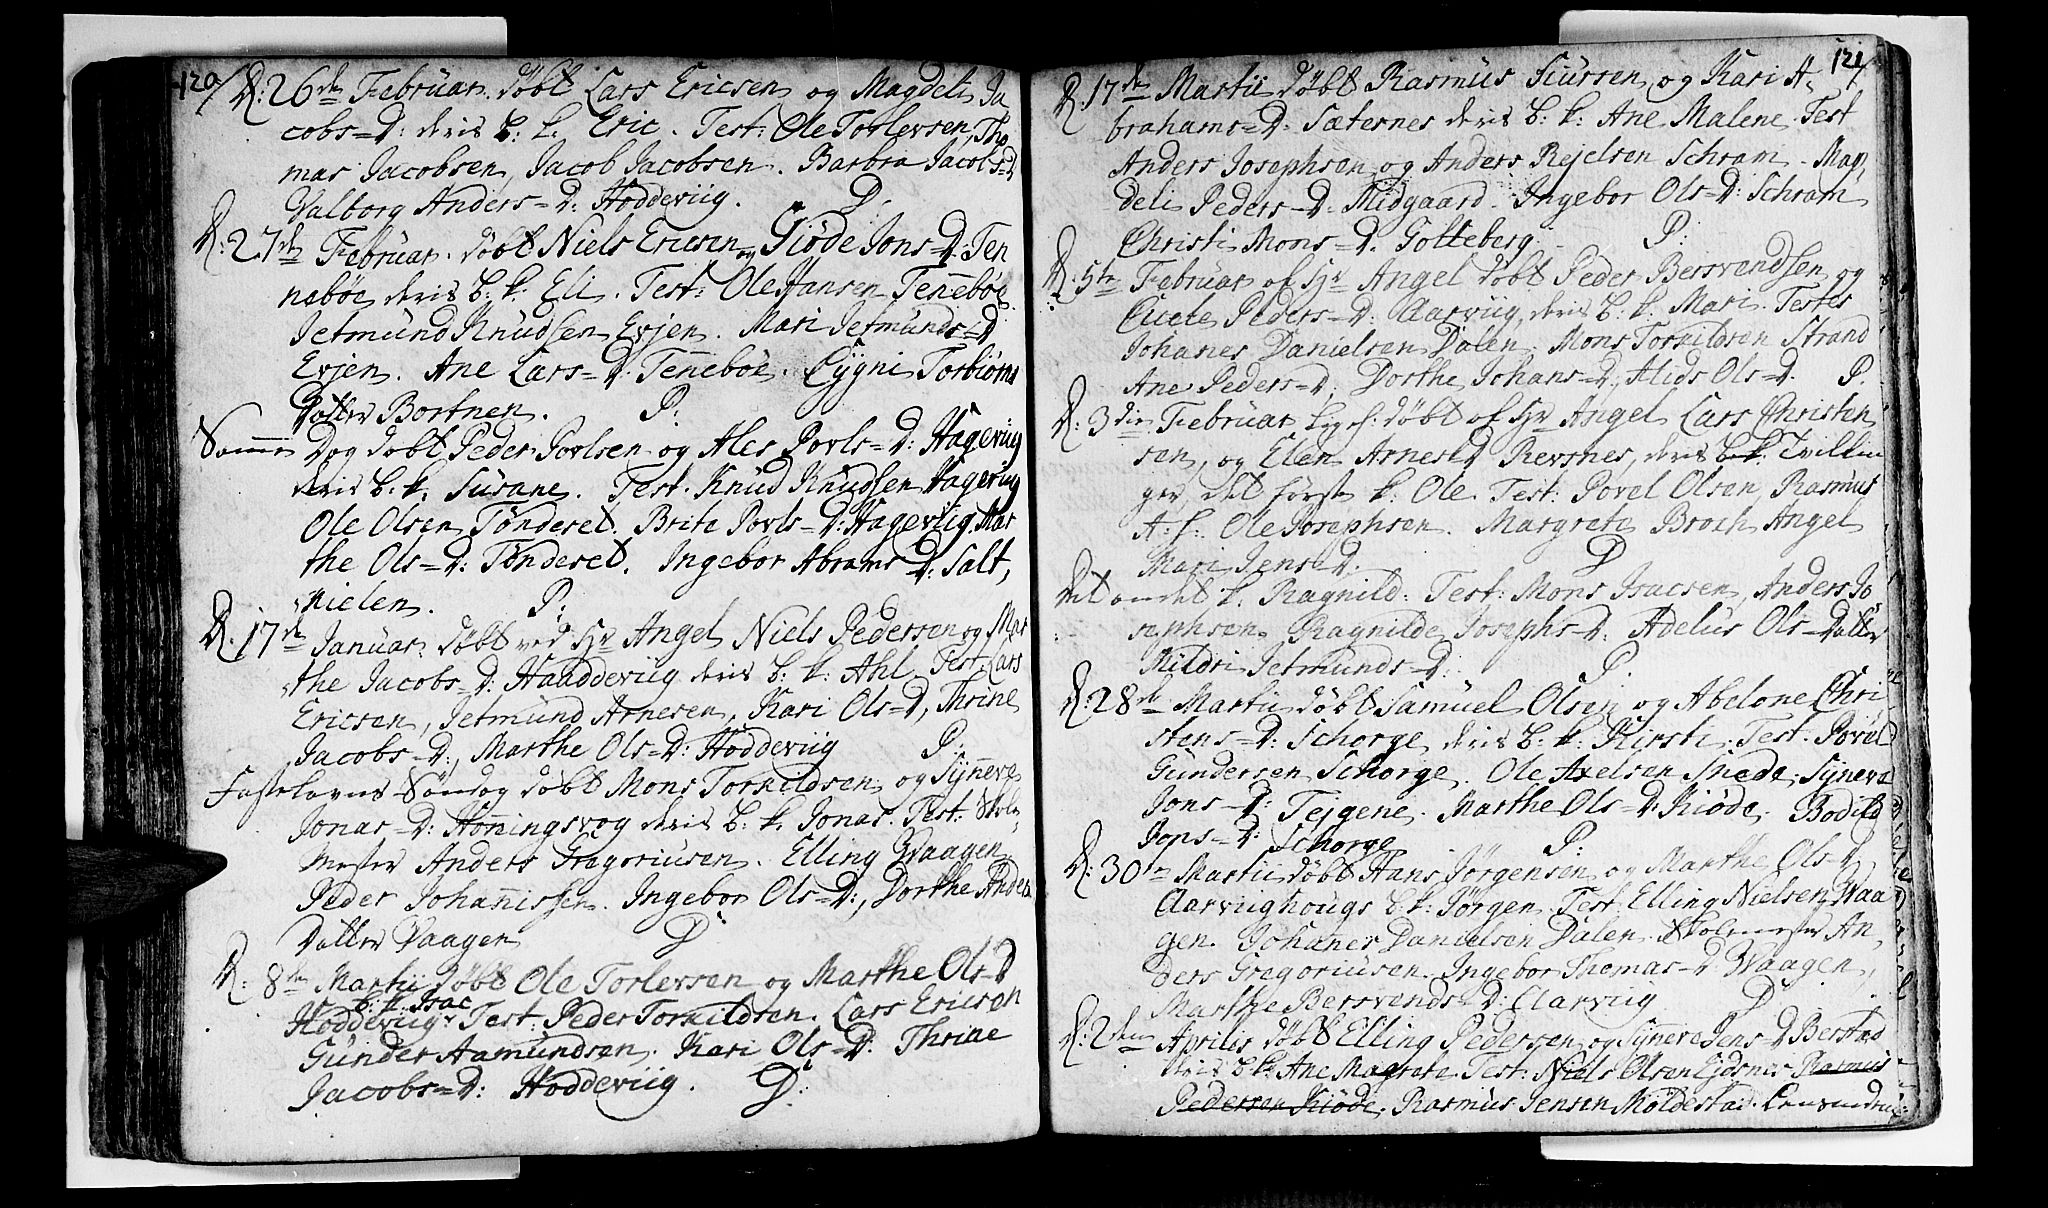 120/
D: 26de Februar. døbt Lars Ericsen og Magdeli Ja
cobs=D: deris b: k: Eric. Test: Ole Torlevsen, Tho
mas Jacobsen, Jacob Jacobsen. Barbra Jacobs=D
Valborg Anders=D: Hoddeviig. P.
D: 27de Februar. døbt Niels Ericsen og Giøde Jons=D: Ten
nebøe deris b: k: Eli. Test: Ole Hansen Tennebøe
Jetmund Knudsen Erjen. Mari Jetmunds=D
Erjen. Ane Lars=D: Tennebøe. Cygni Torbiørns
Datter Bortnen. P:
Samme Dag døbt Peder Povlsen og Ales Povls=D: Hageviig
deris b. k. Susane. Test. Knud Knudsen Hageviig
Ole Olsen Tønderet. Brite Povls=D: Hageviig. Mar
the Ols=D: Tønderet. Ingebor Abrams D: Salt,
kielen. P:
D. 17de Januar: døbt ved Hr Angel Niels Pedersen og Mar
the Jacobs=D: Haaddeviig deris b: k: Ahl. Test: Lars
Ericsen, Jetmund Arnesen, Kari Ols=D, Thrine
Jacobs=D, Marthe Ols=D: Hoddeviig P:
Fastelavns Søndag døbt Mons Torkildsen og Synneve
Jonas=D: Honningsvog deris b: k. Jonas. Test: Skole,
mester Anders Gregoriusen. Elling Vaagen
Peder Johannissen. Ingebor Ols=D:, Dorthe Anders
Datter Vaagen P
D: 8de Martii døbt Ole Torlevsen og Marthe Ols=D
b: k. Isac
Hoddeviig Test: Peder Torkildsen. Lars Ericsen
Gunder Aamundsen. Kari Ols=D: Thrine
Jacobs=D: Hoddeviig. P:
121/
D. 17de Martii døbt Rasmus Siursen og Kari A,
brahams=D: Sæternes deris b: k: Ane Malene. Test
Anders Josephsen og Anders Rejelsen Schram. Mag,
deli Peders=D: Midgaard. Ingebor Ols=D: Schram
Christi Mons=D. Gotteberg. P:
D. 5te Februar af Hr Angel døbt Peder Bersvendsen og
Peders=D: Aarviig, deris b. k. Mari. Testes
Johanes Danielsen Dalen. Mons Torkildsen Strand
Ane Peders=D, Dorthe Johans=D, Alids Ols=D. P.
D: 3die Februar døbt af Hr Angel Lars Christen
sen, og Elen Arnes=D Revsnes, deris b. k. Tvillin
ger, det første k: Ole. Test: Povel Olsen, Rasmus
A. S. Ole Josephsen. Margrete Broch Angel
Mari Jens=D. P
Det andet k. Ragnild. Test: Mons Isacsen, Anders Jo
sephsen. Ragnilde Josephs=D: Adelus Ols=Datter
Kildri Jetmunds=D: P.
D: 28de Martii døbt Samuel Olsen og Abelone Chri
stens=D: Schorge deris b: k: Kirsti. Test. Povel
Gundersen Schorge. Ole Axelsen Snede, Syneve
Jons=D: Tejgene. Marthe Ols=D: Kiøde. Bodild
Jons=D: Schorge P:
D: 30te Martii døbt Hans Jørgensen og Marthe Ols=D
Aarviighougs b. k: Jørgen. Test Elling Nielsen Vaa
gen. Johanes Danielsen Dalen. Skolemester An,
ders Gregoriusen. Ingebor Thomas=D: Vaagen,
Marthe Bersvends=D: Aarviig P
D: 2den Apriles døbt Elling Pedersen og Synneve Jens=D Berstad
deris b: k: Ane Magrete. Test: Niels Olsen Ejdsnes. Rasmus
Pedersen Kiøde. Rasmus Jensen Moldestad.